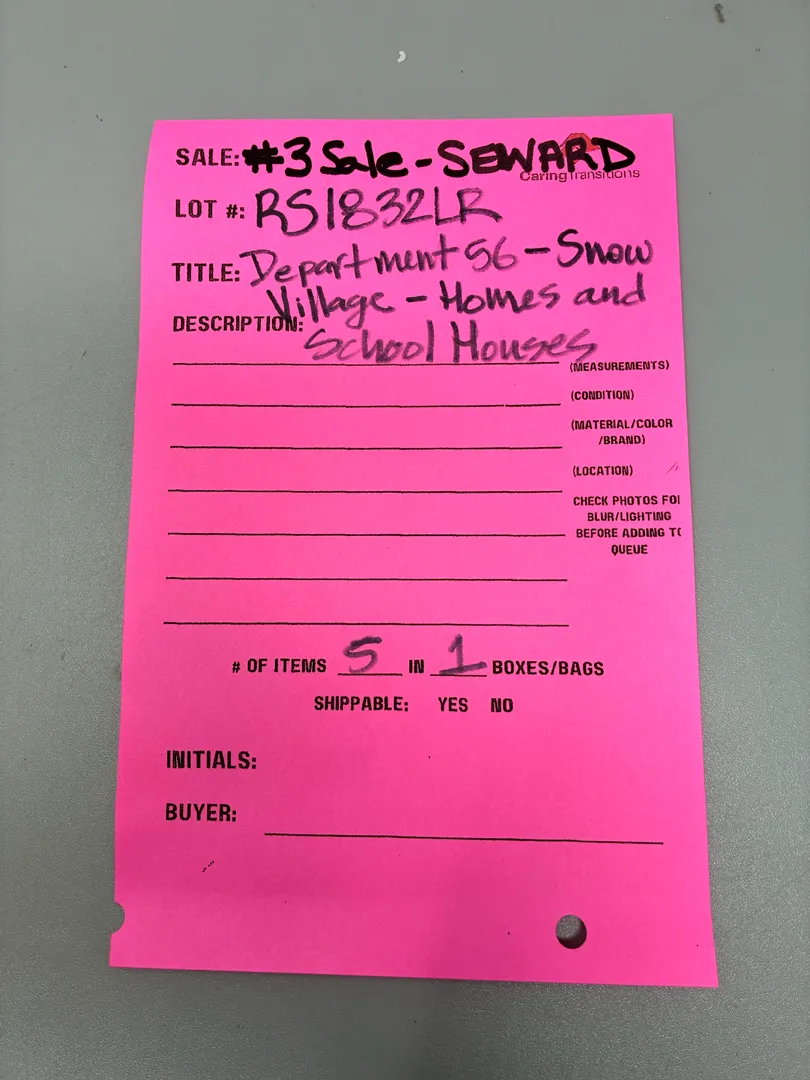 SALE: #3 Sale - SEWARD
CaringTransitions
LOT #: RS1832LR
TITLE: Department 56 - Snow
Village - Homes and
DESCRIPTION:
School Houses
(MEASUREMENTS)
(CONDITION)
(MATERIAL/COLOR
/BRAND)
(LOCATION)
CHECK PHOTOS FOR
BLUR/LIGHTING
BEFORE ADDING TO
QUEUE
# OF ITEMS 5 IN 1 BOXES/BAGS
SHIPPABLE: YES NO
INITIALS:
BUYER: